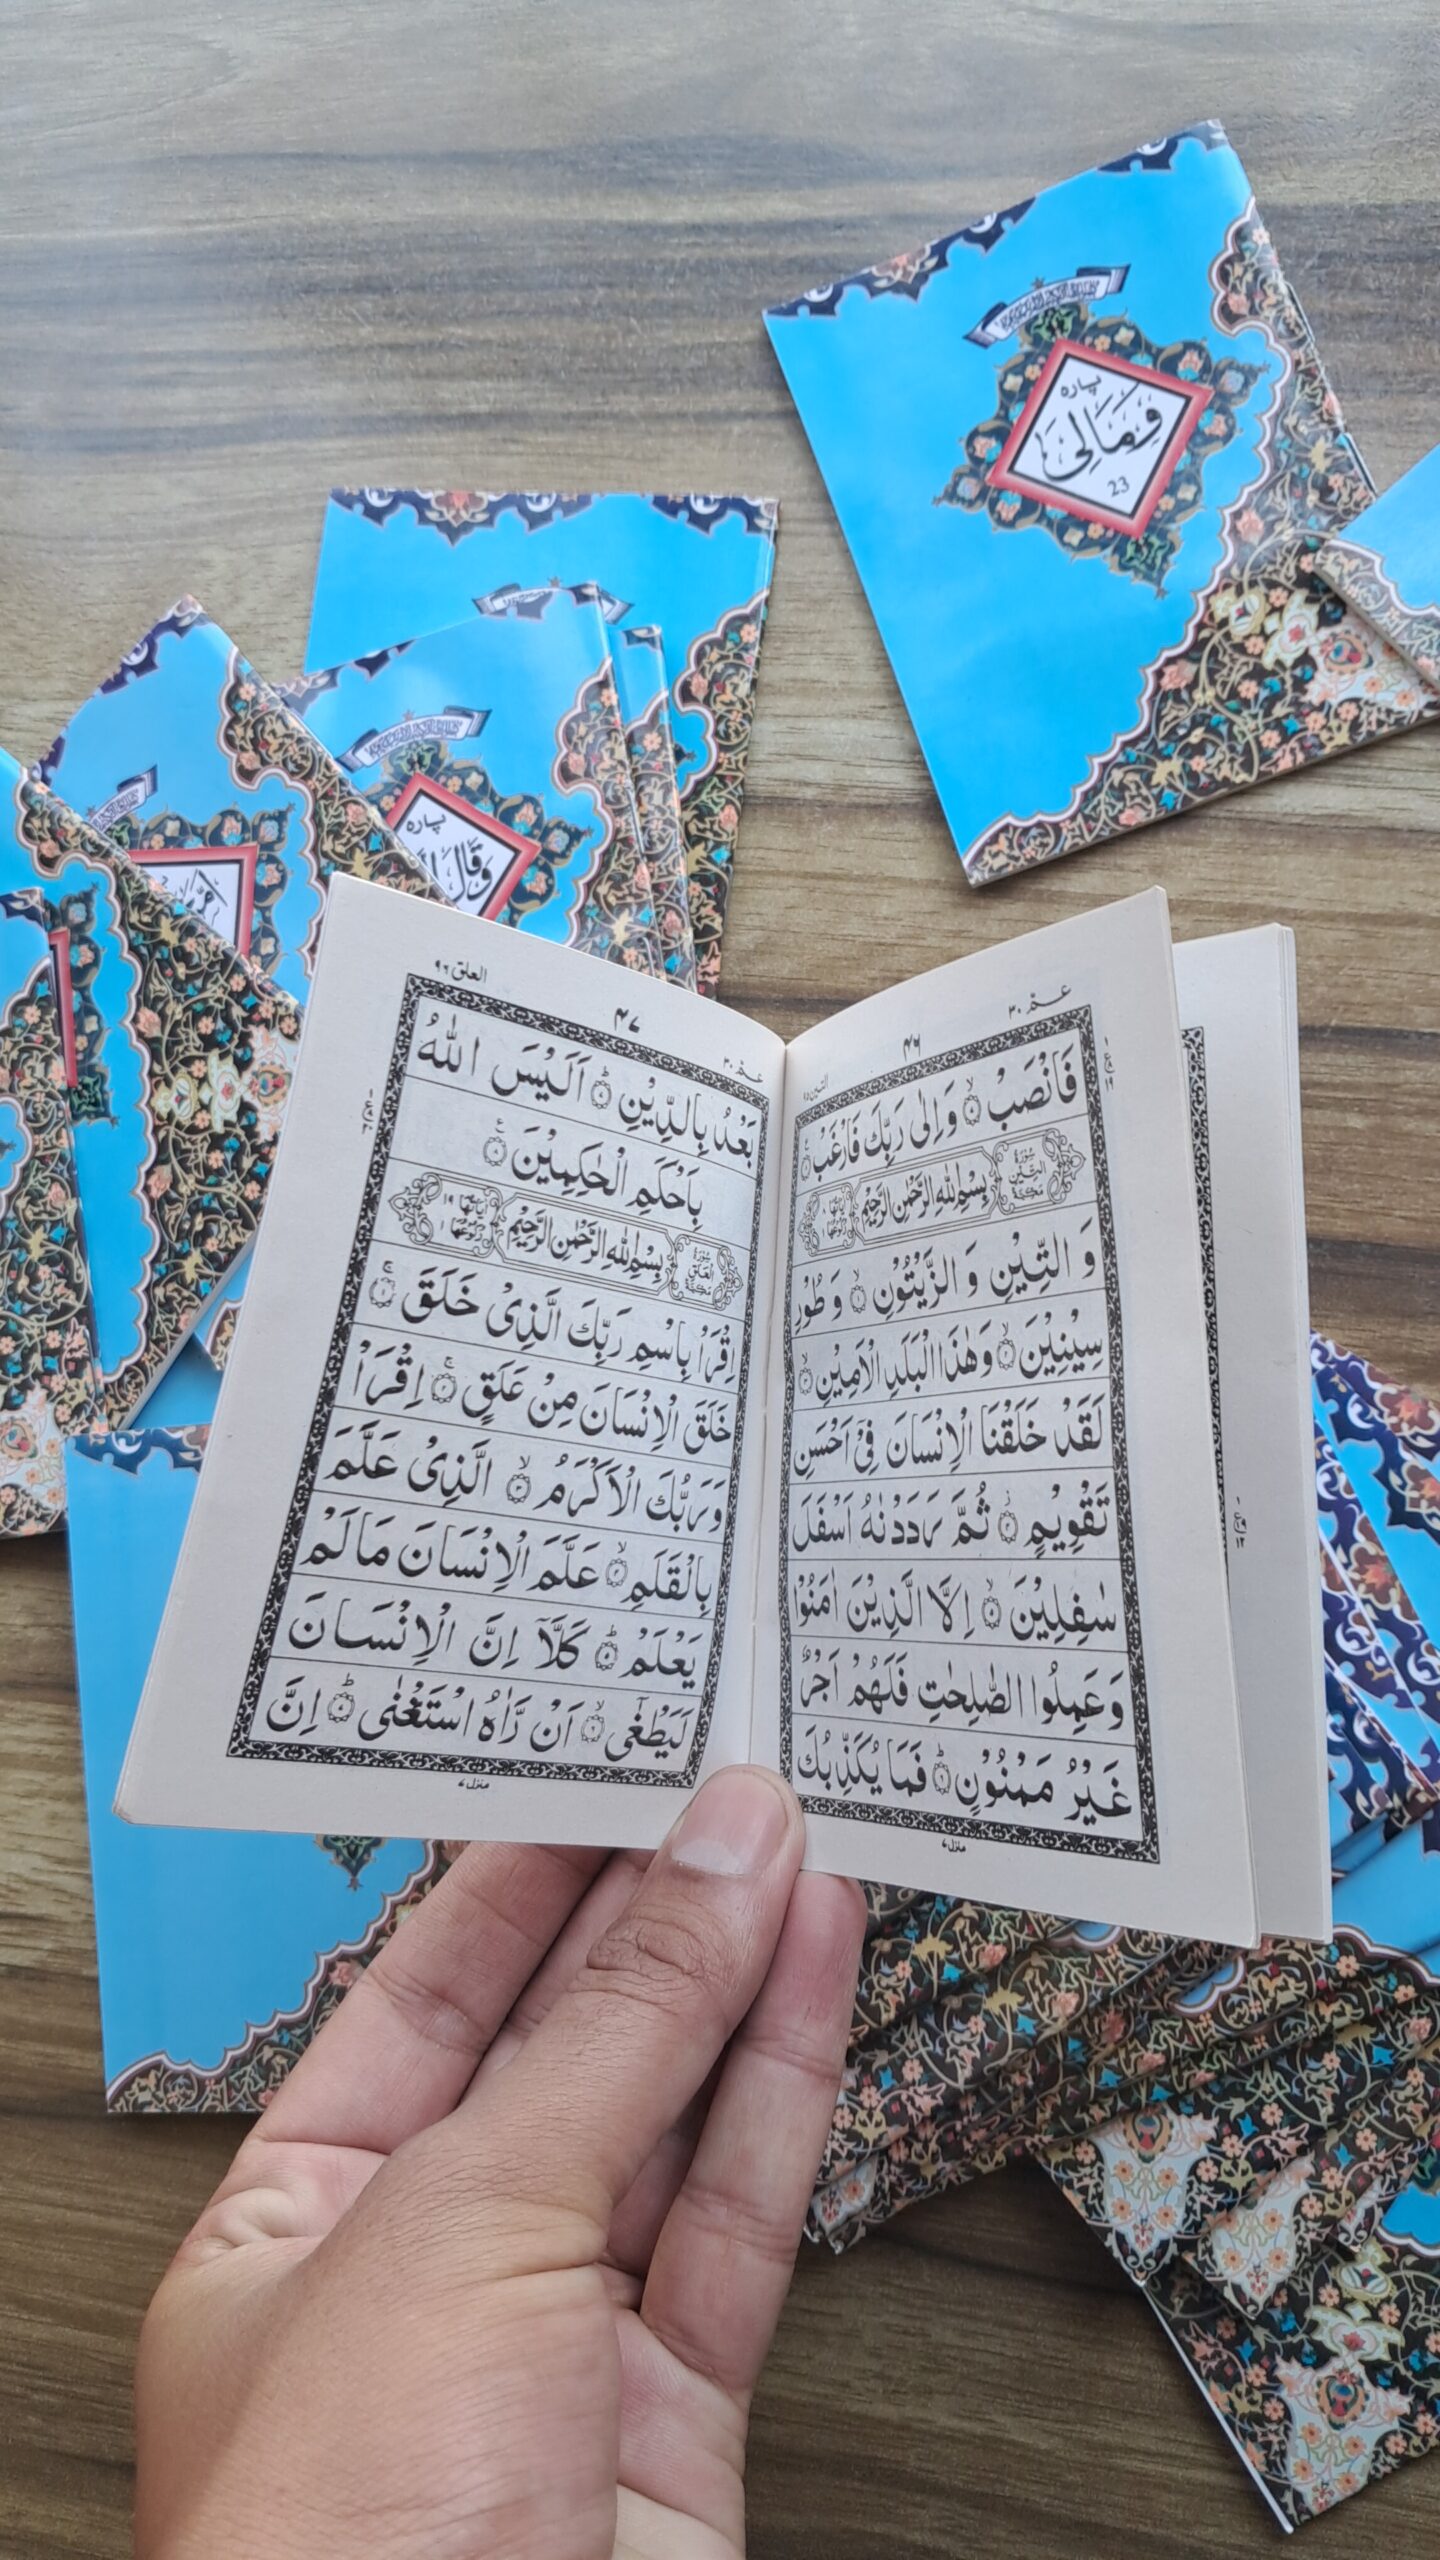 پاره
وَمَالِیَ
23
پاره
وَقَالَ
عـمّ ٣٠
۴۶
التين ٩٥
فَانْصَبْ ۝٧ وَ اِلٰى رَبِّكَ فَارْغَبْ ۝٨
سُوْرَةُ التِّيْنِ مَكِّيَّةٌ
بِسْمِ اللهِ الرَّحْمٰنِ الرَّحِيْمِ
اٰيَاتُهَا ٨ رُكُوْعُهَا ١
وَ التِّيْنِ وَ الزَّيْتُوْنِ ۝١ وَ طُوْرِ
سِيْنِيْنَ ۝٢ وَهٰذَا الْبَلَدِ الْاَمِيْنِ ۝٣
لَقَدْ خَلَقْنَا الْاِنْسَانَ فِيْٓ اَحْسَنِ
تَقْوِيْمٍ ۝٤ ثُمَّ رَدَدْنٰهُ اَسْفَلَ
سٰفِلِيْنَ ۝٥ اِلَّا الَّذِيْنَ اٰمَنُوْا
وَعَمِلُوا الصّٰلِحٰتِ فَلَهُمْ اَجْرٌ
غَيْرُ مَمْنُوْنٍ ۝٦ فَمَا يُكَذِّبُكَ
منزل ٧
عـمّ ٣٠
۴۷
العلق ٩٦
بَعْدُ بِالدِّيْنِ ۝٧ اَلَيْسَ اللهُ
بِاَحْكَمِ الْحٰكِمِيْنَ ۝٨
سُوْرَةُ الْعَلَقِ مَكِّيَّةٌ
بِسْمِ اللهِ الرَّحْمٰنِ الرَّحِيْمِ
اٰيَاتُهَا ١٩ رُكُوْعُهَا ١
اِقْرَاْ بِاسْمِ رَبِّكَ الَّذِيْ خَلَقَ ۝١
خَلَقَ الْاِنْسَانَ مِنْ عَلَقٍ ۝٢ اِقْرَاْ
وَرَبُّكَ الْاَكْرَمُ ۝٣ الَّذِيْ عَلَّمَ
بِالْقَلَمِ ۝٤ عَلَّمَ الْاِنْسَانَ مَا لَمْ
يَعْلَمْ ۝٥ كَلَّآ اِنَّ الْاِنْسَانَ
لَيَطْغٰٓى ۝٦ اَنْ رَّاٰهُ اسْتَغْنٰى ۝٧ اِنَّ
منزل ٧